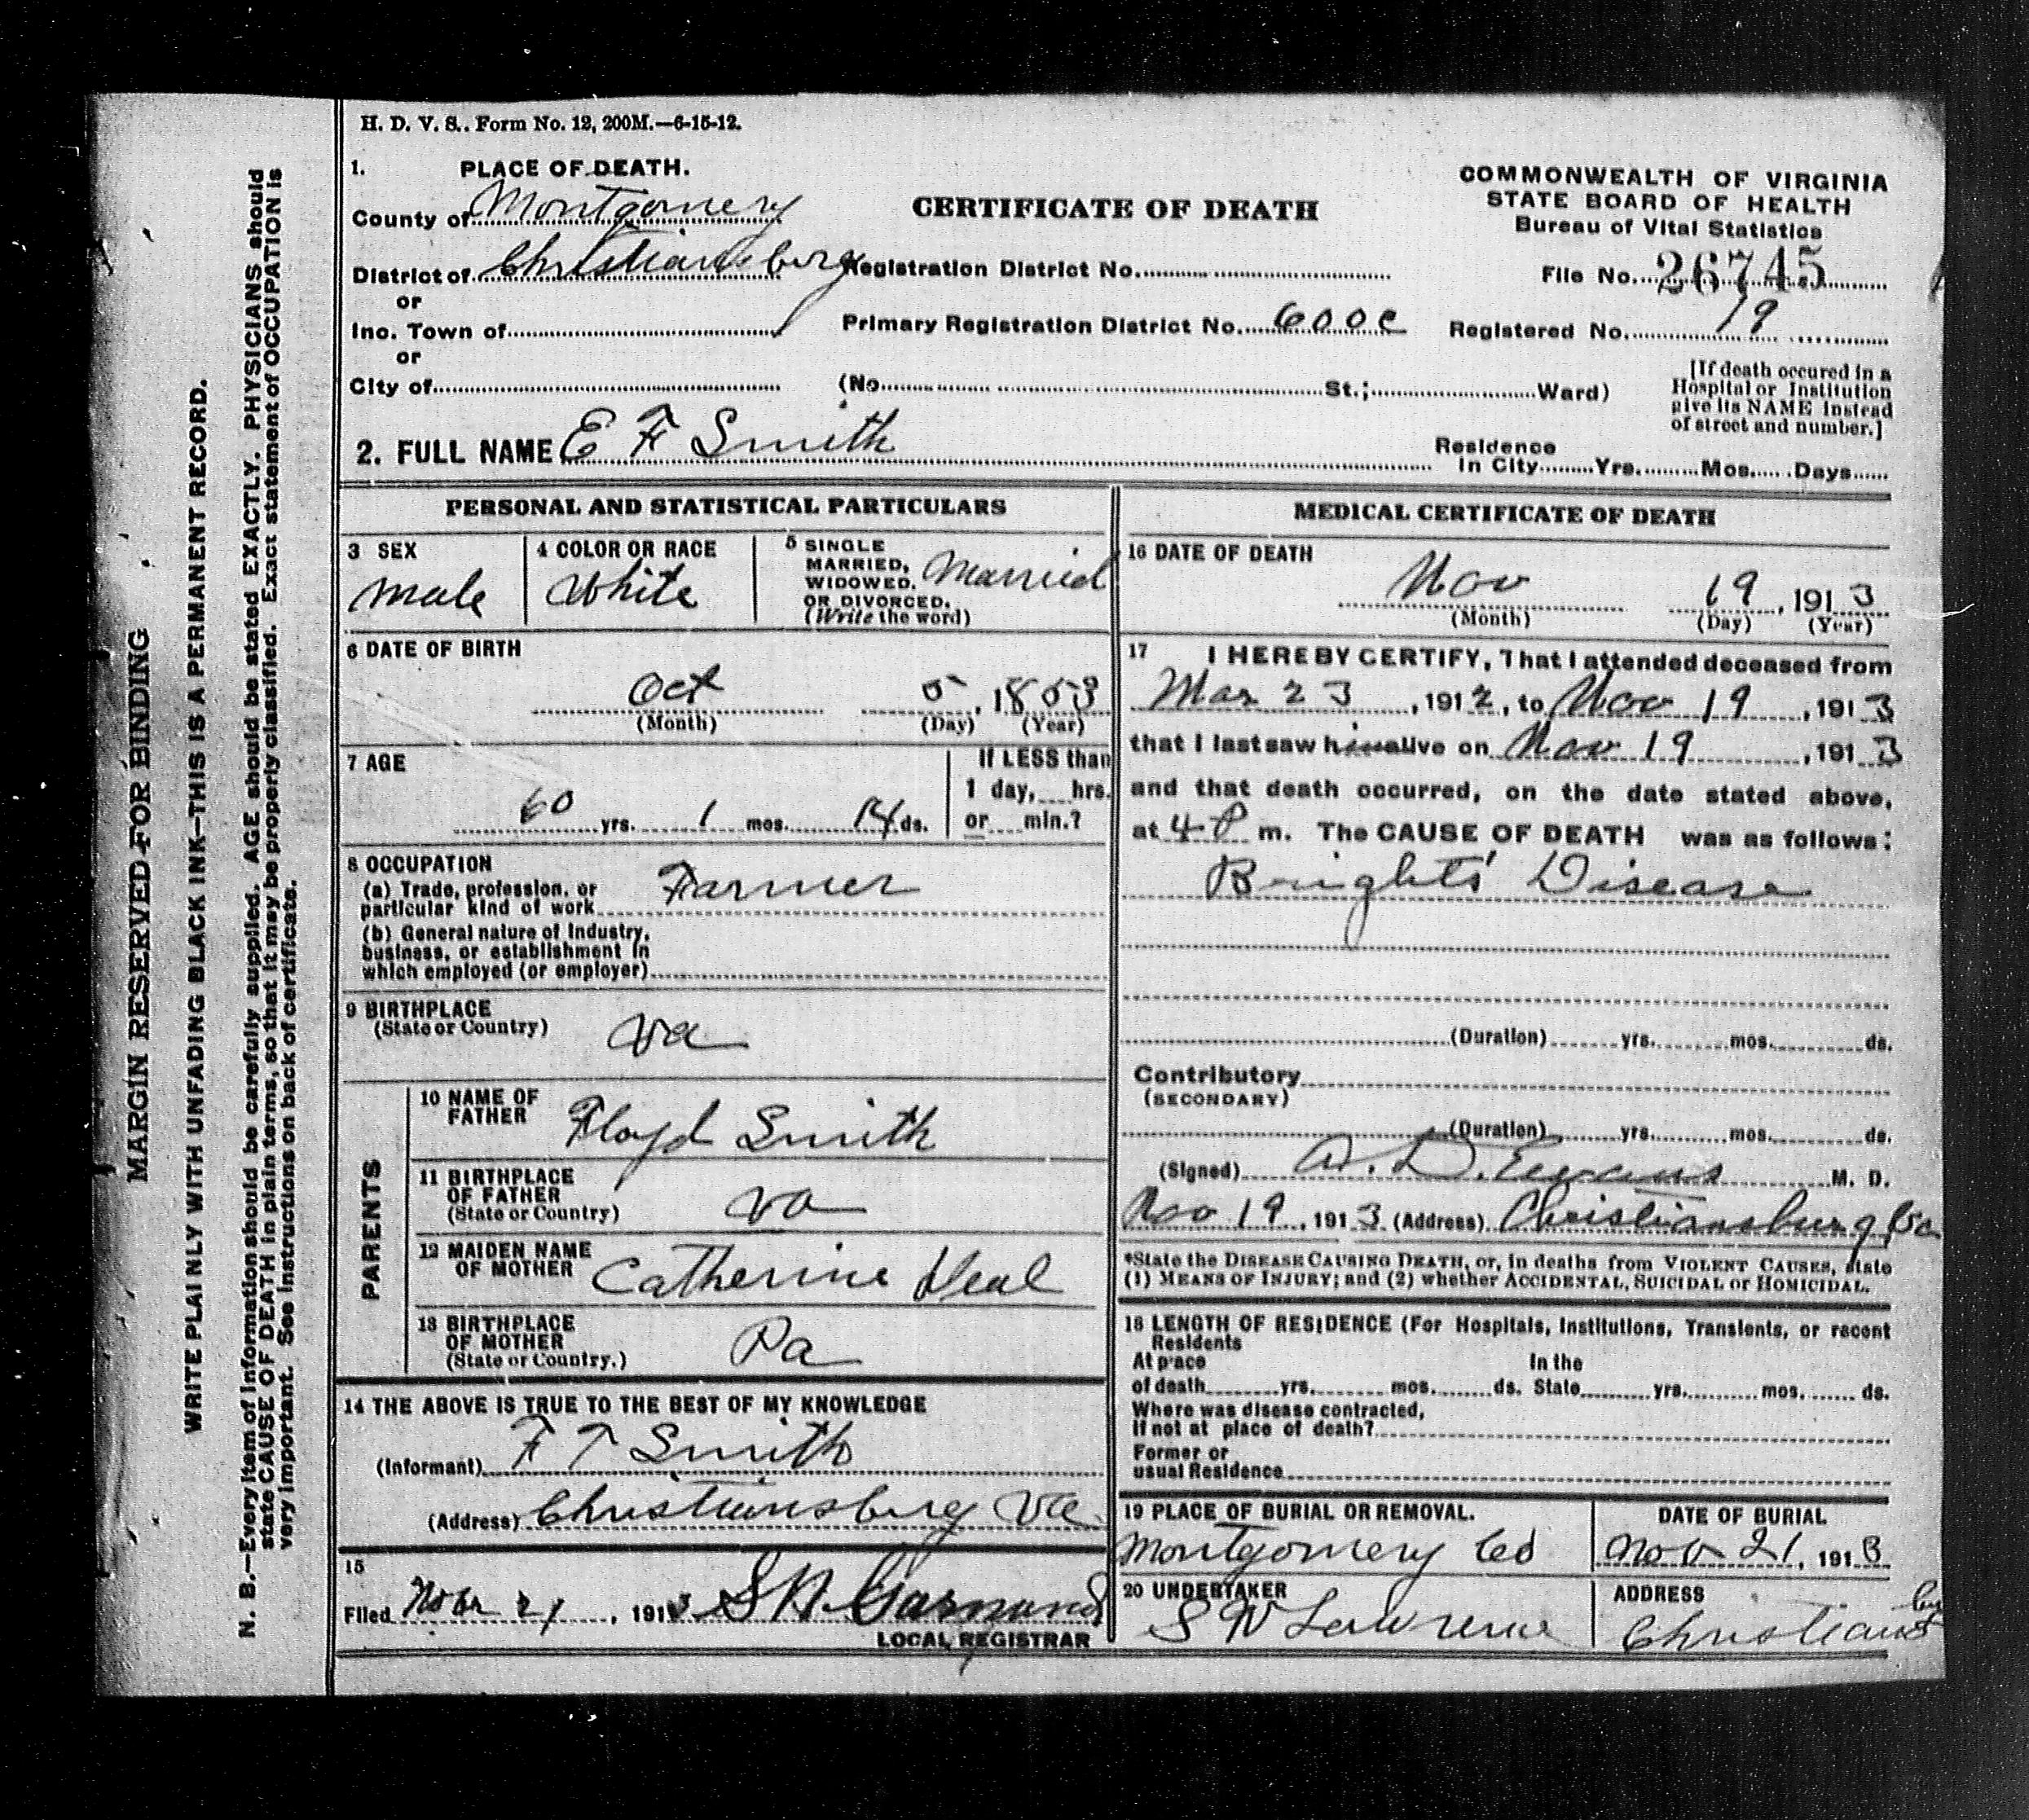 H. D. V. S.. Form No. 12, 200M.—6-15-12.
1. PLACE OF DEATH.
County of Montgomery
District of Christiansburg
or
Inc. Town of
or
City of
CERTIFICATE OF DEATH
Registration District No.
Primary Registration District No. 600c
(No. St.; Ward)
COMMONWEALTH OF VIRGINIA
STATE BOARD OF HEALTH
Bureau of Vital Statistics
File No. 26745
Registered No. 19
[If death occured in a
Hospital or Institution
give its NAME instead
of street and number.]
2. FULL NAME E F Smith
Residence
In City Yrs. Mos. Days
PERSONAL AND STATISTICAL PARTICULARS
3 SEX
male
4 COLOR OR RACE
White
5 SINGLE
MARRIED,
WIDOWED,
OR DIVORCED.
(Write the word)
Married
6 DATE OF BIRTH
Oct 5, 1853
(Month) (Day) (Year)
7 AGE
60 yrs. 1 mos. 14 ds.
If LESS than
1 day, hrs.
or min.?
8 OCCUPATION
(a) Trade, profession, or
particular kind of work Farmer
(b) General nature of Industry,
business, or establishment in
which employed (or employer)
9 BIRTHPLACE
(State or Country) Va
PARENTS
10 NAME OF
FATHER Floyd Smith
11 BIRTHPLACE
OF FATHER
(State or Country) Va
12 MAIDEN NAME
OF MOTHER Catherine Heal
13 BIRTHPLACE
OF MOTHER
(State or Country.) Pa
14 THE ABOVE IS TRUE TO THE BEST OF MY KNOWLEDGE
(Informant) F T Smith
(Address) Christiansburg Va
15
Filed 21, 1913 S
LOCAL REGISTRAR
MEDICAL CERTIFICATE OF DEATH
16 DATE OF DEATH
Nov 19, 1913
(Month) (Day) (Year)
17 I HEREBY CERTIFY, That I attended deceased from
Mar 23, 1912, to Nov 19, 1913
that I last saw him alive on Nov 19, 1913
and that death occurred, on the date stated above,
at 4 P m. The CAUSE OF DEATH was as follows:
Brights' Disease
(Duration) yrs. mos. ds.
Contributory
(SECONDARY)
(Duration) yrs. mos. ds.
(Signed) D. Evans M. D.
Nov 19, 1913 (Address) Christiansburg Va
*State the DISEASE CAUSING DEATH, or, in deaths from VIOLENT CAUSES, state
(1) MEANS OF INJURY; and (2) whether ACCIDENTAL, SUICIDAL or HOMICIDAL.
18 LENGTH OF RESIDENCE (For Hospitals, Institutions, Transients, or recent
Residents
At place In the
of death yrs. mos. ds. State yrs. mos. ds.
Where was disease contracted,
If not at place of death?
Former or
usual Residence
19 PLACE OF BURIAL OR REMOVAL.
Montgomery Co
DATE OF BURIAL
Nov 21, 1913
20 UNDERTAKER
S W Lawrence
ADDRESS
Christiansburg
MARGIN RESERVED FOR BINDING
WRITE PLAINLY WITH UNFADING BLACK INK—THIS IS A PERMANENT RECORD.
N. B.—Every item of information should be carefully supplied. AGE should be stated EXACTLY. PHYSICIANS should
state CAUSE OF DEATH in plain terms, so that it may be properly classified. Exact statement of OCCUPATION is
very important. See instructions on back of certificate.